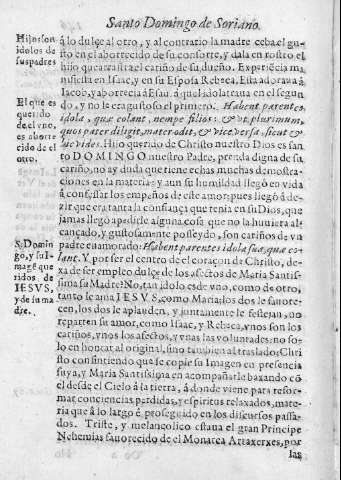 Santo Domingo de Soriano.
Hijos son
idolos de
sus padres
El que es
querido
de el vno,
es aborre
cido de el
otro.
S. Domin
go, y su I-
magē que
ridos de
IESVS,
y de su ma
dre.
â lo dulçe al otro, y al contrario la madre ceba el gu-
sto en el aborrecido de su consorte, y dala en rostro el
hijo que arrastra el cariño de su dueño. Experiēcia ma
nifiesta en Isaac, y en su Esposa Rebeca, Esta adoraua â
Iacob, y aborrecia â Esau, â quel idolatraua en el segun
do, y no le era gustoso el primero. Habent parentes
idola, quæ colant, nempe filios: & vt plurimum,
quos pater diligit, mater odit, & viceversa, sicut &
hic vides. Hijo querido de Christo nuestro Dios es san
to DOMINGO nuestro Padre, prenda digna de su
cariño, no ay duda que tiene echas muchas demostra
ciones en la materia: y aun su humildad llegó en vida
â confessar los empeños de este amor: pues llegó â de-
zir que era tanta la confiança que tenia en su Dios, que
jamas llegó apedirle alguna cosa que no la huuiera al-
cançado, y gustosamente posseydo, son cariños de vn
padre enamorado: Habent parentes idola suæ, quæ co-
lant. Y por ser el centro de el coraçon de Christo, de-
xa de ser empleo dulçe de los afectos de Maria Santis
sima sa Madre? No, tan idolo es de vno, como de otro,
tanto le ama IESVS, como Maria, los dos le fauore-
cen, los dos le aplauden, y juntamente le festejan, no
reparten su amor, como Isaac, y Rebeca, vnos son los
cariños, vnos los afectos, y vnas las voluntades: no so-
lo en honrar al original, sino tambien al traslado, Chri
sto consintiendo que se copie su Imagen en presencia
suya, y Maria Santissima en acompañarle baxando cō
el desde el Cielo â la tierra, â donde viene para refor-
mar conciencias perdidas, y espiritus relaxados, mate-
ria que â lo largo ê proseguido en los discursos passa-
dos. Triste, y melancolico estaua el gran Principe
Nehemias fauorecido de el Monarca Artaxerxes, por
las